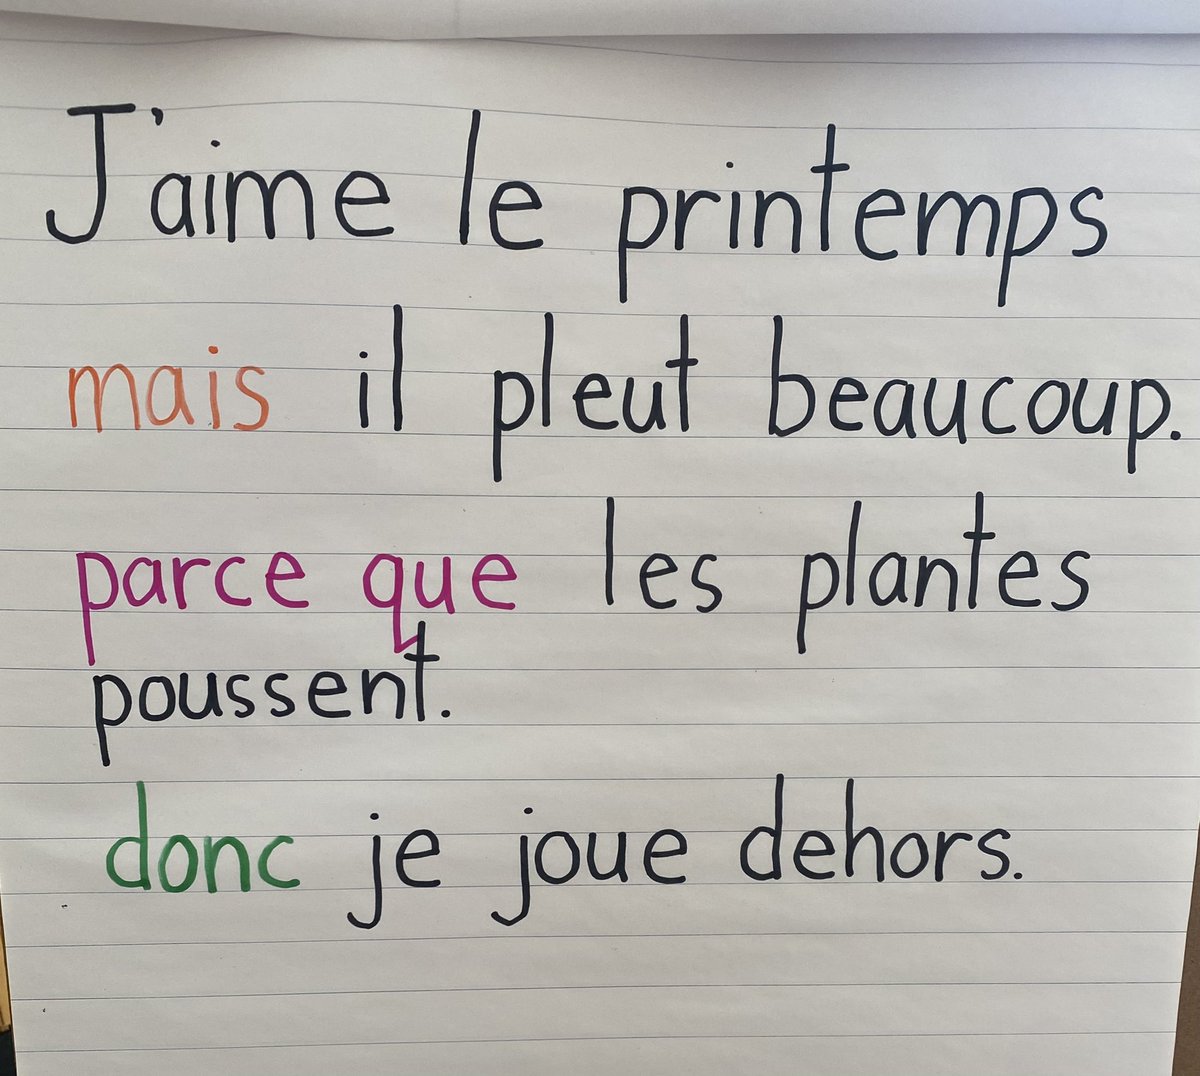 J'aime le printemps
mais il pleut beaucoup.
parce que les plantes
poussent.
donc je joue dehors.